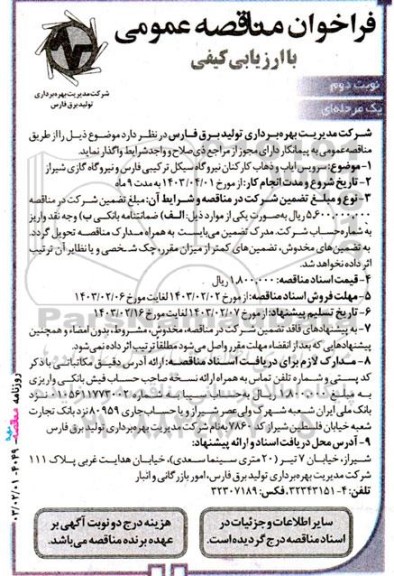 فراخوان مناقصه عمومی
با ارزیابی کیفی
شرکت مدیریت بهره برداری
تولید برق فارس
نوبت دوم
یک مرحله‌ای
شرکت مدیریت بهره برداری تولید برق فارس در نظر دارد موضوع ذیل را از طریق
مناقصه عمومی به پیمانکار دارای مجوز از مراجع ذی صلاح و واجد شرایط واگذار نماید.
۱- موضوع: سرویس ایاب و ذهاب کارکنان نیروگاه سیکل ترکیبی فارس و نیروگاه گازی شیراز
۲- تاریخ شروع و مدت انجام کار: از مورخ ۱۴۰۳/۰۴/۰۱ به مدت ۹ ماه
۳- نوع و مبلغ تضمین شرکت در مناقصه و شرایط آن: مبلغ تضمین شرکت در مناقصه
۵,۶۰۰,۰۰۰,۰۰۰ ریال به صورت یکی از موارد ذیل: الف) ضمانتنامه بانکی ب) وجه نقد واریز
به شماره حساب شرکت. مدرک تضمین می بایست به همراه مدارک مناقصه تحویل گردد.
به تضمین های مخدوش، تضمین های کمتر از میزان مقرر، چک شخصی و یا نظایر آن ترتیب
اثر داده نخواهد شد.
۴- قیمت اسناد مناقصه: ۱,۸۰۰,۰۰۰ ریال
۵- مهلت فروش اسناد مناقصه: از مورخ ۱۴۰۳/۰۲/۰۲ لغایت مورخ ۱۴۰۳/۰۲/۰۶
۶- تاریخ تسلیم پیشنهاد: از مورخ ۱۴۰۳/۰۲/۰۷ لغایت مورخ ۱۴۰۳/۰۲/۱۶
۷- به پیشنهادهای فاقد تضمین شرکت در مناقصه، مخدوش، مشروط، بدون امضاء و همچنین
پیشنهادهایی که بعد از انقضاء مهلت مقرر واصل می شود مطلقا ترتیب اثر داده نمی شود.
۸- مدارک لازم برای دریافت اسناد مناقصه: ارائه آدرس دقیق مکاتباتی با ذکر
کد پستی و شماره تلفن تماس به همراه ارائه نسخه صاحب حساب فیش بانکی واریزی
به مبلغ ۱,۸۰۰,۰۰۰ ریال به حساب سیبا به شماره نزد
بانک ملی ایران شعبه شهرک ولی عصر شیراز و یا حساب جاری ۸۰۹۵۹ نزد بانک تجارت
شعبه خیابان فلسطین شیراز کد ۷۸۶۰ به نام شرکت مدیریت بهره برداری تولید برق فارس
۹- آدرس محل دریافت اسناد و ارائه پیشنهاد:
شیراز، خیابان ۷ تیر (۲۰ متری سینما سعدی)، خیابان هدایت غربی پلاک ۱۱۱
شرکت مدیریت بهره برداری تولید برق فارس، امور بازرگانی و انبار
تلفن: ۴-۳۲۳۴۳۱۵۱، فکس: ۳۲۳۰۷۱۸۹
سایر اطلاعات و جزئیات در
اسناد مناقصه درج گردیده است.
هزینه درج دو نوبت آگهی بر
عهده برنده مناقصه می باشد.
روزنامه مناقصه ۴۰۴۹ - ۰۳/۰۲/۰۱